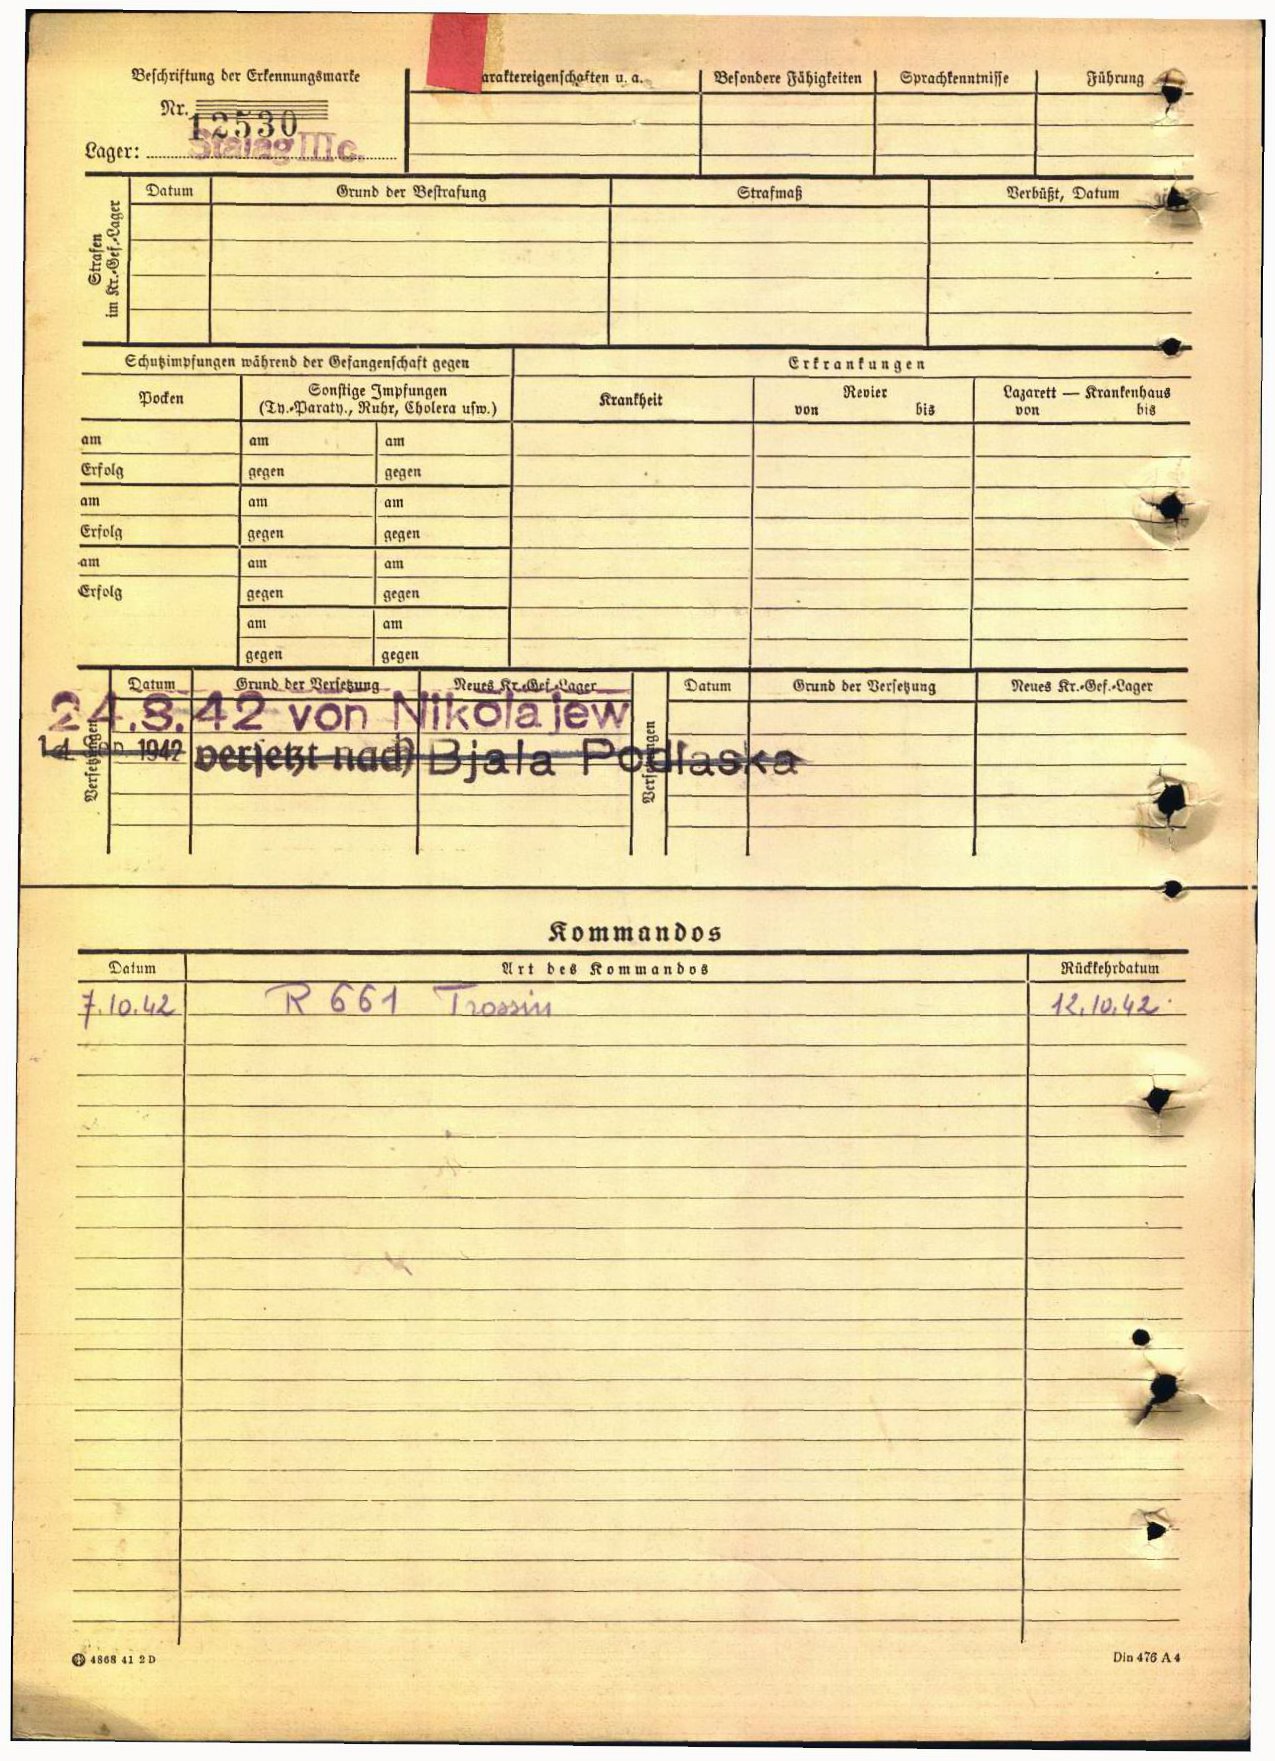 Beschriftung der Erkennungsmarke
Nr. 12530
Lager: Stalag III c.
araktereigenschaften u. a.
Besondere Fähigkeiten
Sprachkenntnisse
Führung
Strafen
im Kr.-Gef.-Lager
Datum
Grund der Bestrafung
Strafmaß
Verbüßt, Datum
Schutzimpfungen während der Gefangenschaft gegen
Erkrankungen
Pocken
Sonstige Impfungen
(Ty.-Paraty., Ruhr, Cholera usw.)
Krankheit
Revier
von bis
Lazarett — Krankenhaus
von bis
am am am
Erfolg gegen gegen
am am am
Erfolg gegen gegen
am am am
Erfolg gegen gegen
am am
gegen gegen
Versetzungen
Datum Grund der Versetzung Neues Kr.-Gef.-Lager
Versetzungen
Datum Grund der Versetzung Neues Kr.-Gef.-Lager
24.8.42 von Nikolajew
1942 versetzt nach Bjala Podlaska
Kommandos
Datum Art des Kommandos Rückkehrdatum
7.10.42 R 661 Trossin 12.10.42
4868 41 2 D
Din 476 A 4